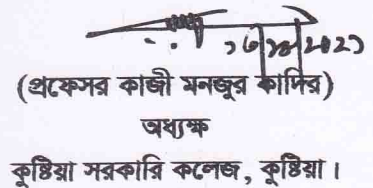 (প্রফেসর কাজী মনজুর কাদির)
অধ্যক্ষ
কুষ্টিয়া সরকারি কলেজ, কুষ্টিয়া।